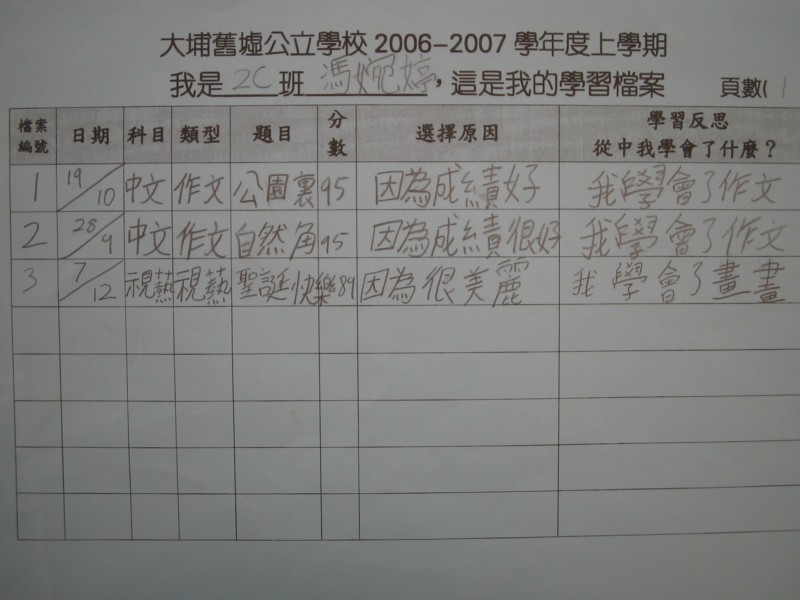 大埔舊墟公立學校 2006-2007 學年度上學期
我是 2C 班 馮婉婷，這是我的學習檔案 頁數( 1
檔案編號 日期 科目 類型 題目 分數 選擇原因 學習反思 從中我學會了什麼？
1 19/10 中文 作文 公園裏 95 因為成績好 我學會了作文
2 28/9 中文 作文 自然角 95 因為成績很好 我學會了作文
3 7/12 視熱 視熱 聖誕快樂 89 因為很美麗 我學會了畫畫